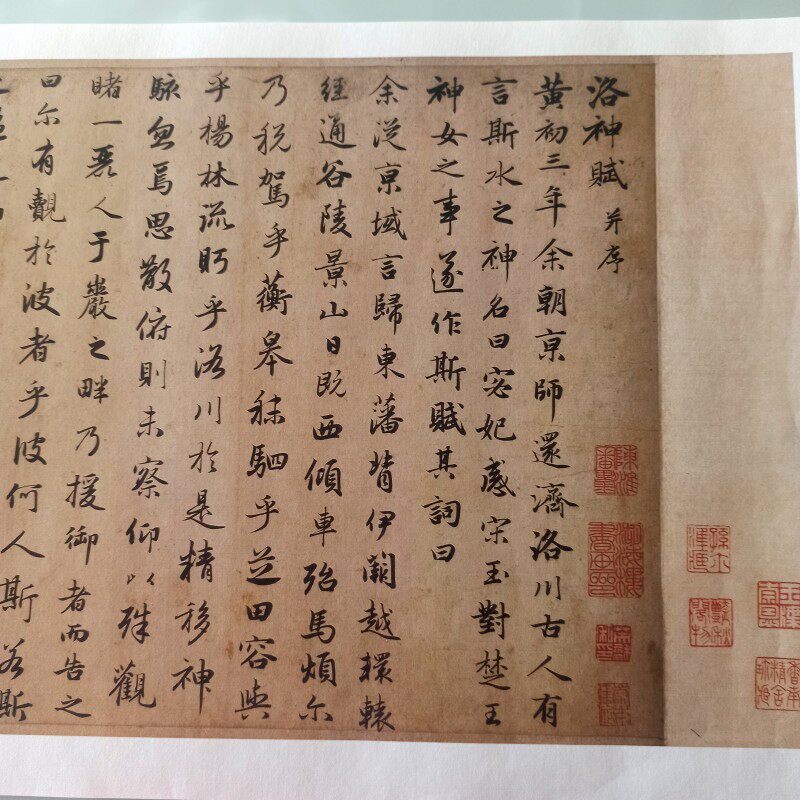 洛神賦 并序
黄初三年余朝京師還濟洛川古人有
言斯水之神名曰宓妃感宋玉對楚王
神女之事遂作斯賦其詞曰
余從京域言歸東藩背伊闕越轘轅
經通谷陵景山日既西傾車殆馬煩尔
乃税駕乎蘅皋秣駟乎芝田容與
乎楊林流眄乎洛川於是精移神
駭忽焉思散俯則未察仰以殊觀
睹一麗人于巖之畔乃援御者而告之
曰尔有覿於彼者乎彼何人斯若斯